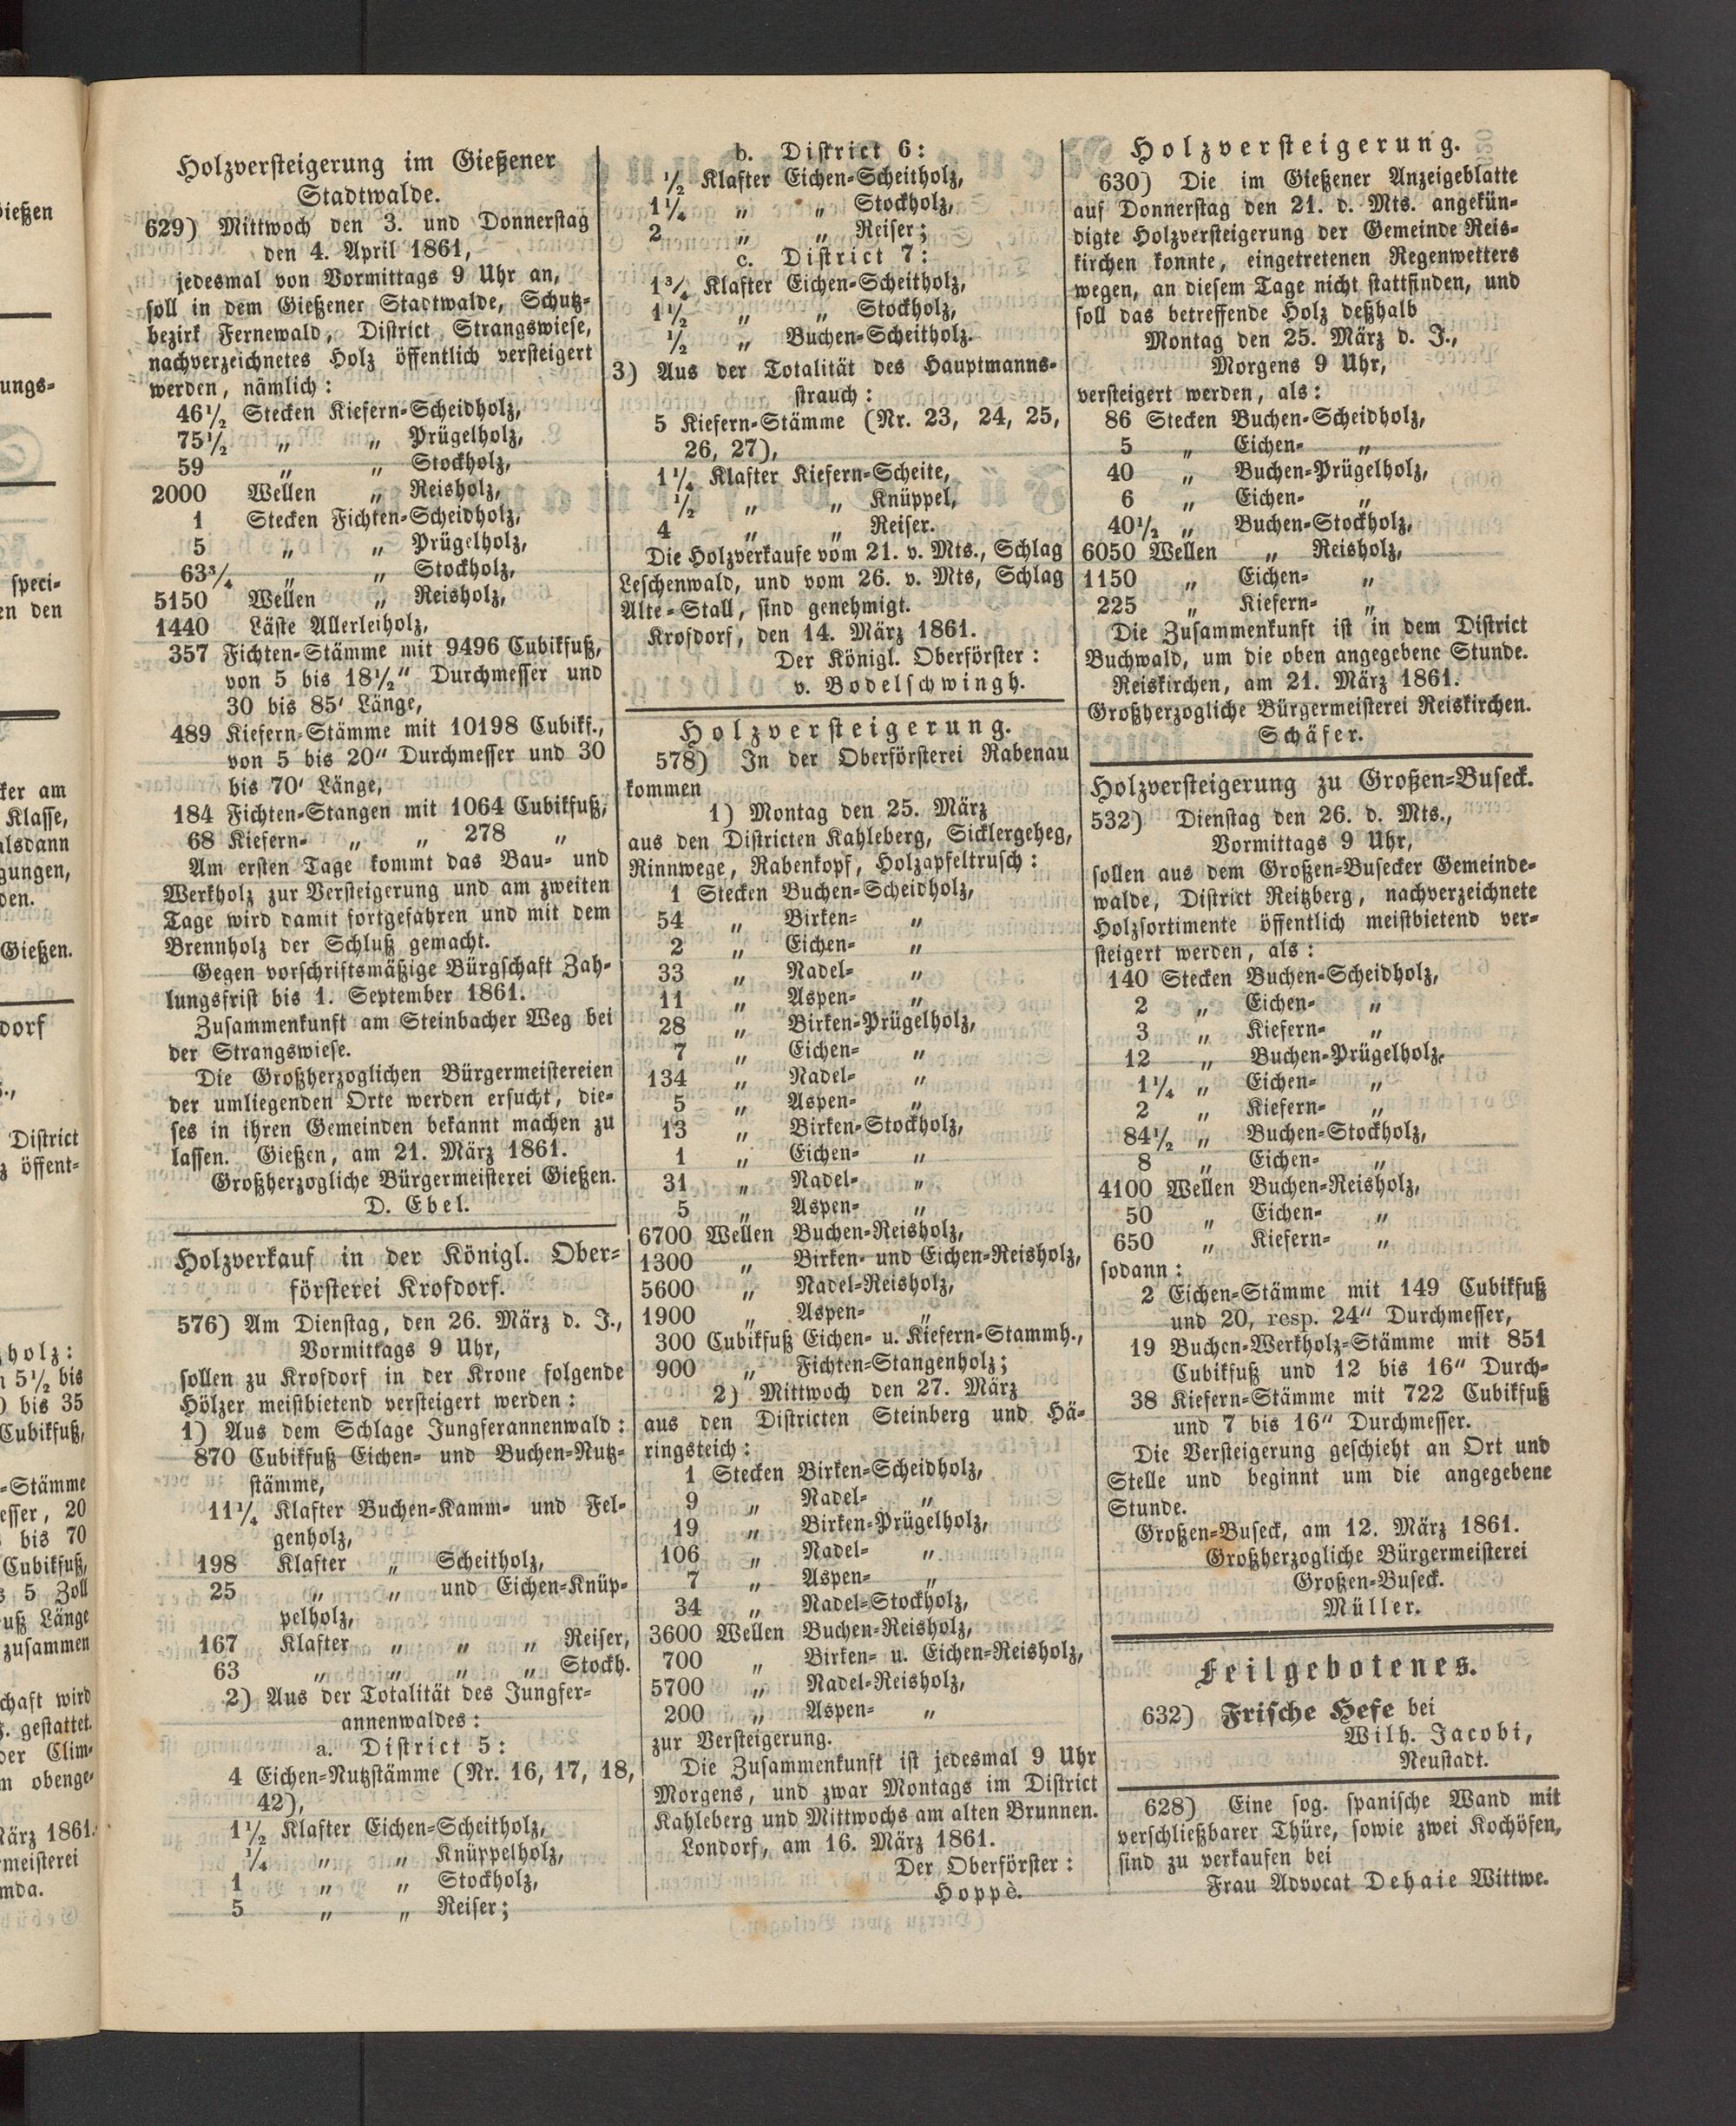 Holzversteigerung im Gießener
Stadtwalde.
629) Mittwoch den 3. und Donnerstag
den 4. April 1861,
jedesmal von Vormittags 9 Uhr an,
soll in dem Gießener Stadtwalde, Schutz-
bezirk Fernewald, District Strangswiese,
nachverzeichnetes Holz öffentlich versteigert
werden, nämlich:
46½ Stecken Kiefern-Scheidholz,
75½ „ „ Prügelholz,
59 „ „ Stockholz,
2000 Wellen „ Reisholz,
1 Stecken Fichten-Scheidholz,
5 „ „ Prügelholz,
63¾ „ „ Stockholz,
5150 Wellen „ Reisholz,
1440 Läste Allerleiholz,
357 Fichten-Stämme mit 9496 Cubikfuß,
von 5 bis 18½" Durchmesser und
30 bis 85' Länge,
489 Kiefern-Stämme mit 10198 Cubikf.,
von 5 bis 20" Durchmesser und 30
bis 70' Länge,
184 Fichten-Stangen mit 1064 Cubikfuß,
68 Kiefern- „ „ 278 „
Am ersten Tage kommt das Bau- und
Werkholz zur Versteigerung und am zweiten
Tage wird damit fortgefahren und mit dem
Brennholz der Schluß gemacht.
Gegen vorschriftsmäßige Bürgschaft Zah-
lungsfrist bis 1. September 1861.
Zusammenkunft am Steinbacher Weg bei
der Strangswiese.
Die Großherzoglichen Bürgermeistereien
der umliegenden Orte werden ersucht, die-
ses in ihren Gemeinden bekannt machen zu
lassen. Gießen, am 21. März 1861.
Großherzogliche Bürgermeisterei Gießen.
D. Ebel.
Holzverkauf in der Königl. Ober-
försterei Krofdorf.
576) Am Dienstag, den 26. März d. J.,
Vormittags 9 Uhr,
sollen zu Krofdorf in der Krone folgende
Hölzer meistbietend versteigert werden:
1) Aus dem Schlage Jungferannenwald:
870 Cubikfuß Eichen- und Buchen-Nutz-
stämme,
11¼ Klafter Buchen-Kamm- und Fel-
genholz,
198 Klafter „ Scheitholz,
25 „ „ und Eichen-Knüp-
pelholz,
167 Klafter „ „ „ Reiser,
63 „ „ „ „ Stockh.
2) Aus der Totalität des Jungfer-
annenwaldes:
a. District 5:
4 Eichen-Nutzstämme (Nr. 16, 17, 18,
42),
1½ Klafter Eichen-Scheitholz,
¼ „ „ Knüppelholz,
1 „ „ Stockholz,
5 „ „ Reiser;
b. District 6:
½ Klafter Eichen-Scheitholz,
1¼ „ „ Stockholz,
2 „ „ Reiser;
c. District 7:
1¾ Klafter Eichen-Scheitholz,
1½ „ „ Stockholz,
½ „ Buchen-Scheitholz.
3) Aus der Totalität des Hauptmanns-
strauch:
5 Kiefern-Stämme (Nr. 23, 24, 25,
26, 27),
1¼ Klafter Kiefern-Scheite,
½ „ „ Knüppel,
4 „ „ Reiser.
Die Holzverkaufe vom 21. v. Mts., Schlag
Leschenwald, und vom 26. v. Mts, Schlag
Alte-Stall, sind genehmigt.
Krofdorf, den 14. März 1861.
Der Königl. Oberförster:
v. Bodelschwingh.
Holzversteigerung.
578) In der Oberförsterei Rabenau
kommen
1) Montag den 25. März
aus den Districten Kahleberg, Sicklergeheg,
Rinnwege, Rabenkopf, Holzapfeltrusch:
1 Stecken Buchen-Scheidholz,
54 „ Birken- „
2 „ Eichen- „
33 „ Nadel- „
11 „ Aspen- „
28 „ Birken-Prügelholz,
7 „ Eichen- „
134 „ Nadel- „
5 „ Aspen- „
13 „ Birken-Stockholz,
1 „ Eichen- „
31 „ Nadel- „
5 „ Aspen- „
6700 Wellen Buchen-Reisholz,
1300 „ Birken- und Eichen-Reisholz,
5600 „ Nadel-Reisholz,
1900 „ Aspen- „
300 Cubikfuß Eichen- u. Kiefern-Stammh.,
900 „ Fichten-Stangenholz;
2) Mittwoch den 27. März
aus den Districten Steinberg und Hä-
ringsteich:
1 Stecken Birken-Scheidholz,
9 „ Nadel- „
19 „ Birken-Prügelholz,
106 „ Nadel- „
7 „ Aspen- „
34 „ Nadel-Stockholz,
3600 Wellen Buchen-Reisholz,
700 „ Birken- u. Eichen-Reisholz,
5700 „ Nadel-Reisholz,
200 „ Aspen- „
zur Versteigerung.
Die Zusammenkunft ist jedesmal 9 Uhr
Morgens, und zwar Montags im District
Kahleberg und Mittwochs am alten Brunnen.
Londorf, am 16. März 1861.
Der Oberförster:
Hoppè.
Holzversteigerung.
630) Die im Gießener Anzeigeblatte
auf Donnerstag den 21. d. Mts. angekün-
digte Holzversteigerung der Gemeinde Reis-
kirchen konnte, eingetretenen Regenwetters
wegen, an diesem Tage nicht stattfinden, und
soll das betreffende Holz deßhalb
Montag den 25. März d. J.,
Morgens 9 Uhr,
versteigert werden, als:
86 Stecken Buchen-Scheidholz,
5 „ Eichen- „
40 „ Buchen-Prügelholz,
6 „ Eichen- „
40½ „ Buchen-Stockholz,
6050 Wellen „ Reisholz,
1150 „ Eichen- „
225 „ Kiefern- „
Die Zusammenkunft ist in dem District
Buchwald, um die oben angegebene Stunde.
Reiskirchen, am 21. März 1861.
Großherzogliche Bürgermeisterei Reiskirchen.
Schäfer.
Holzversteigerung zu Großen-Buseck.
532) Dienstag den 26. d. Mts.,
Vormittags 9 Uhr,
sollen aus dem Großen-Busecker Gemeinde-
walde, District Reitzberg, nachverzeichnete
Holzsortimente öffentlich meistbietend ver-
steigert werden, als:
140 Stecken Buchen-Scheidholz,
2 „ Eichen- „
3 „ Kiefern- „
12 „ Buchen-Prügelholz,
1¼ „ Eichen- „
2 „ Kiefern- „
84½ „ Buchen-Stockholz,
8 „ Eichen- „
4100 Wellen Buchen-Reisholz,
50 „ Eichen- „
650 „ Kiefern- „
sodann:
2 Eichen-Stämme mit 149 Cubikfuß
und 20, resp. 24" Durchmesser,
19 Buchen-Werkholz-Stämme mit 851
Cubikfuß und 12 bis 16" Durch-
38 Kiefern-Stämme mit 722 Cubikfuß
und 7 bis 16" Durchmesser.
Die Versteigerung geschieht an Ort und
Stelle und beginnt um die angegebene
Stunde.
Großen-Buseck, am 12. März 1861.
Großherzogliche Bürgermeisterei
Großen-Buseck.
Müller.
Feilgebotenes.
632) Frische Hefe bei
Wilh. Jacobi,
Neustadt.
628) Eine sog. spanische Wand mit
verschließbarer Thüre, sowie zwei Kochöfen,
sind zu verkaufen bei
Frau Advocat Dehaie Wittwe.